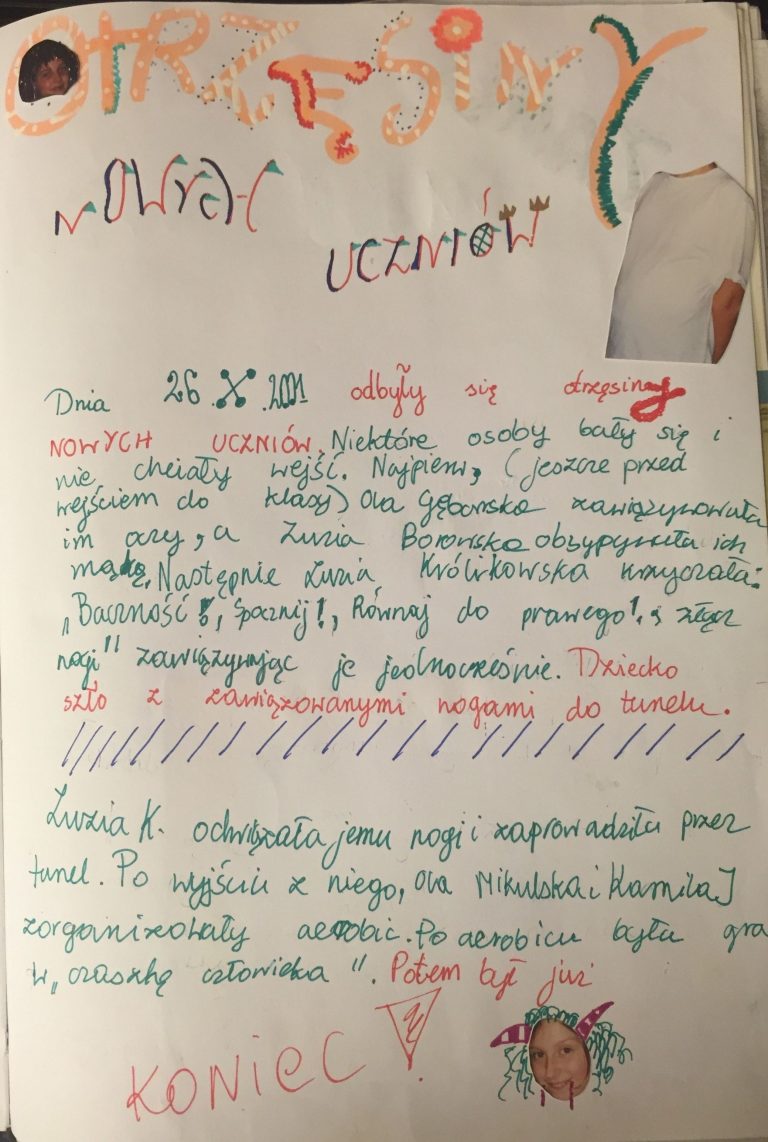 OTRZĘSINY
NOWYCH
UCZNIÓW
Dnia 26.X.2001 odbyły się otrzęsiny
NOWYCH UCZNIÓW. Niektóre osoby bały się i
nie chciały wejść. Najpierw, (jeszcze przed
wejściem do klasy) Ola Gęborska zawiązywała
im oczy, a Zuzia Borowska obsypywała ich
mąką. Następnie Zuzia Królikowska krzyczała:
„Baczność!, Spocznij!, Równaj do prawego!, złącz
nogi" zawiązywując je jednocześnie. Dziecko
szło z zawiązowanymi nogami do tunelu.
Zuzia K. odwiązała jemu nogi i zaprowadziła przez
tunel. Po wyjściu z niego, Ola Mikulska i Kamila J
zorganizowały aerobic. Po aerobicu była gra
w „czaszkę człowieka". Potem był już
KONIEC!